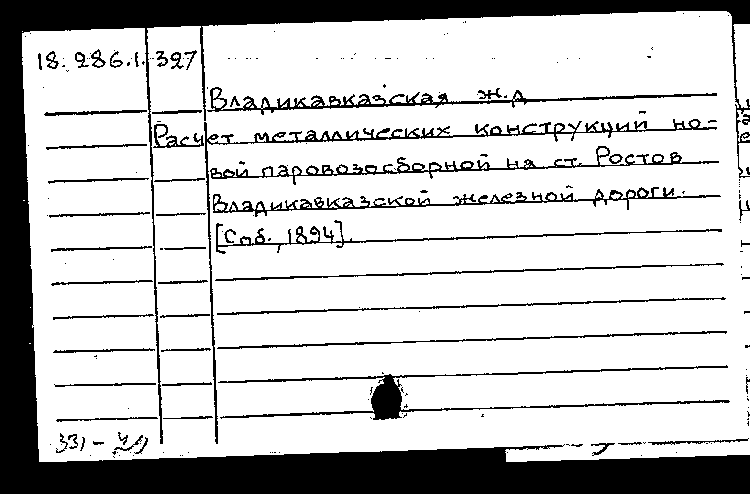 18.286.1.327
Владикавказская ж.д
Расчет металлических конструкций но-
вой паровозосборной на ст. Ростов
Владикавказской железной дороги.
[Спб., 1894].
331 –